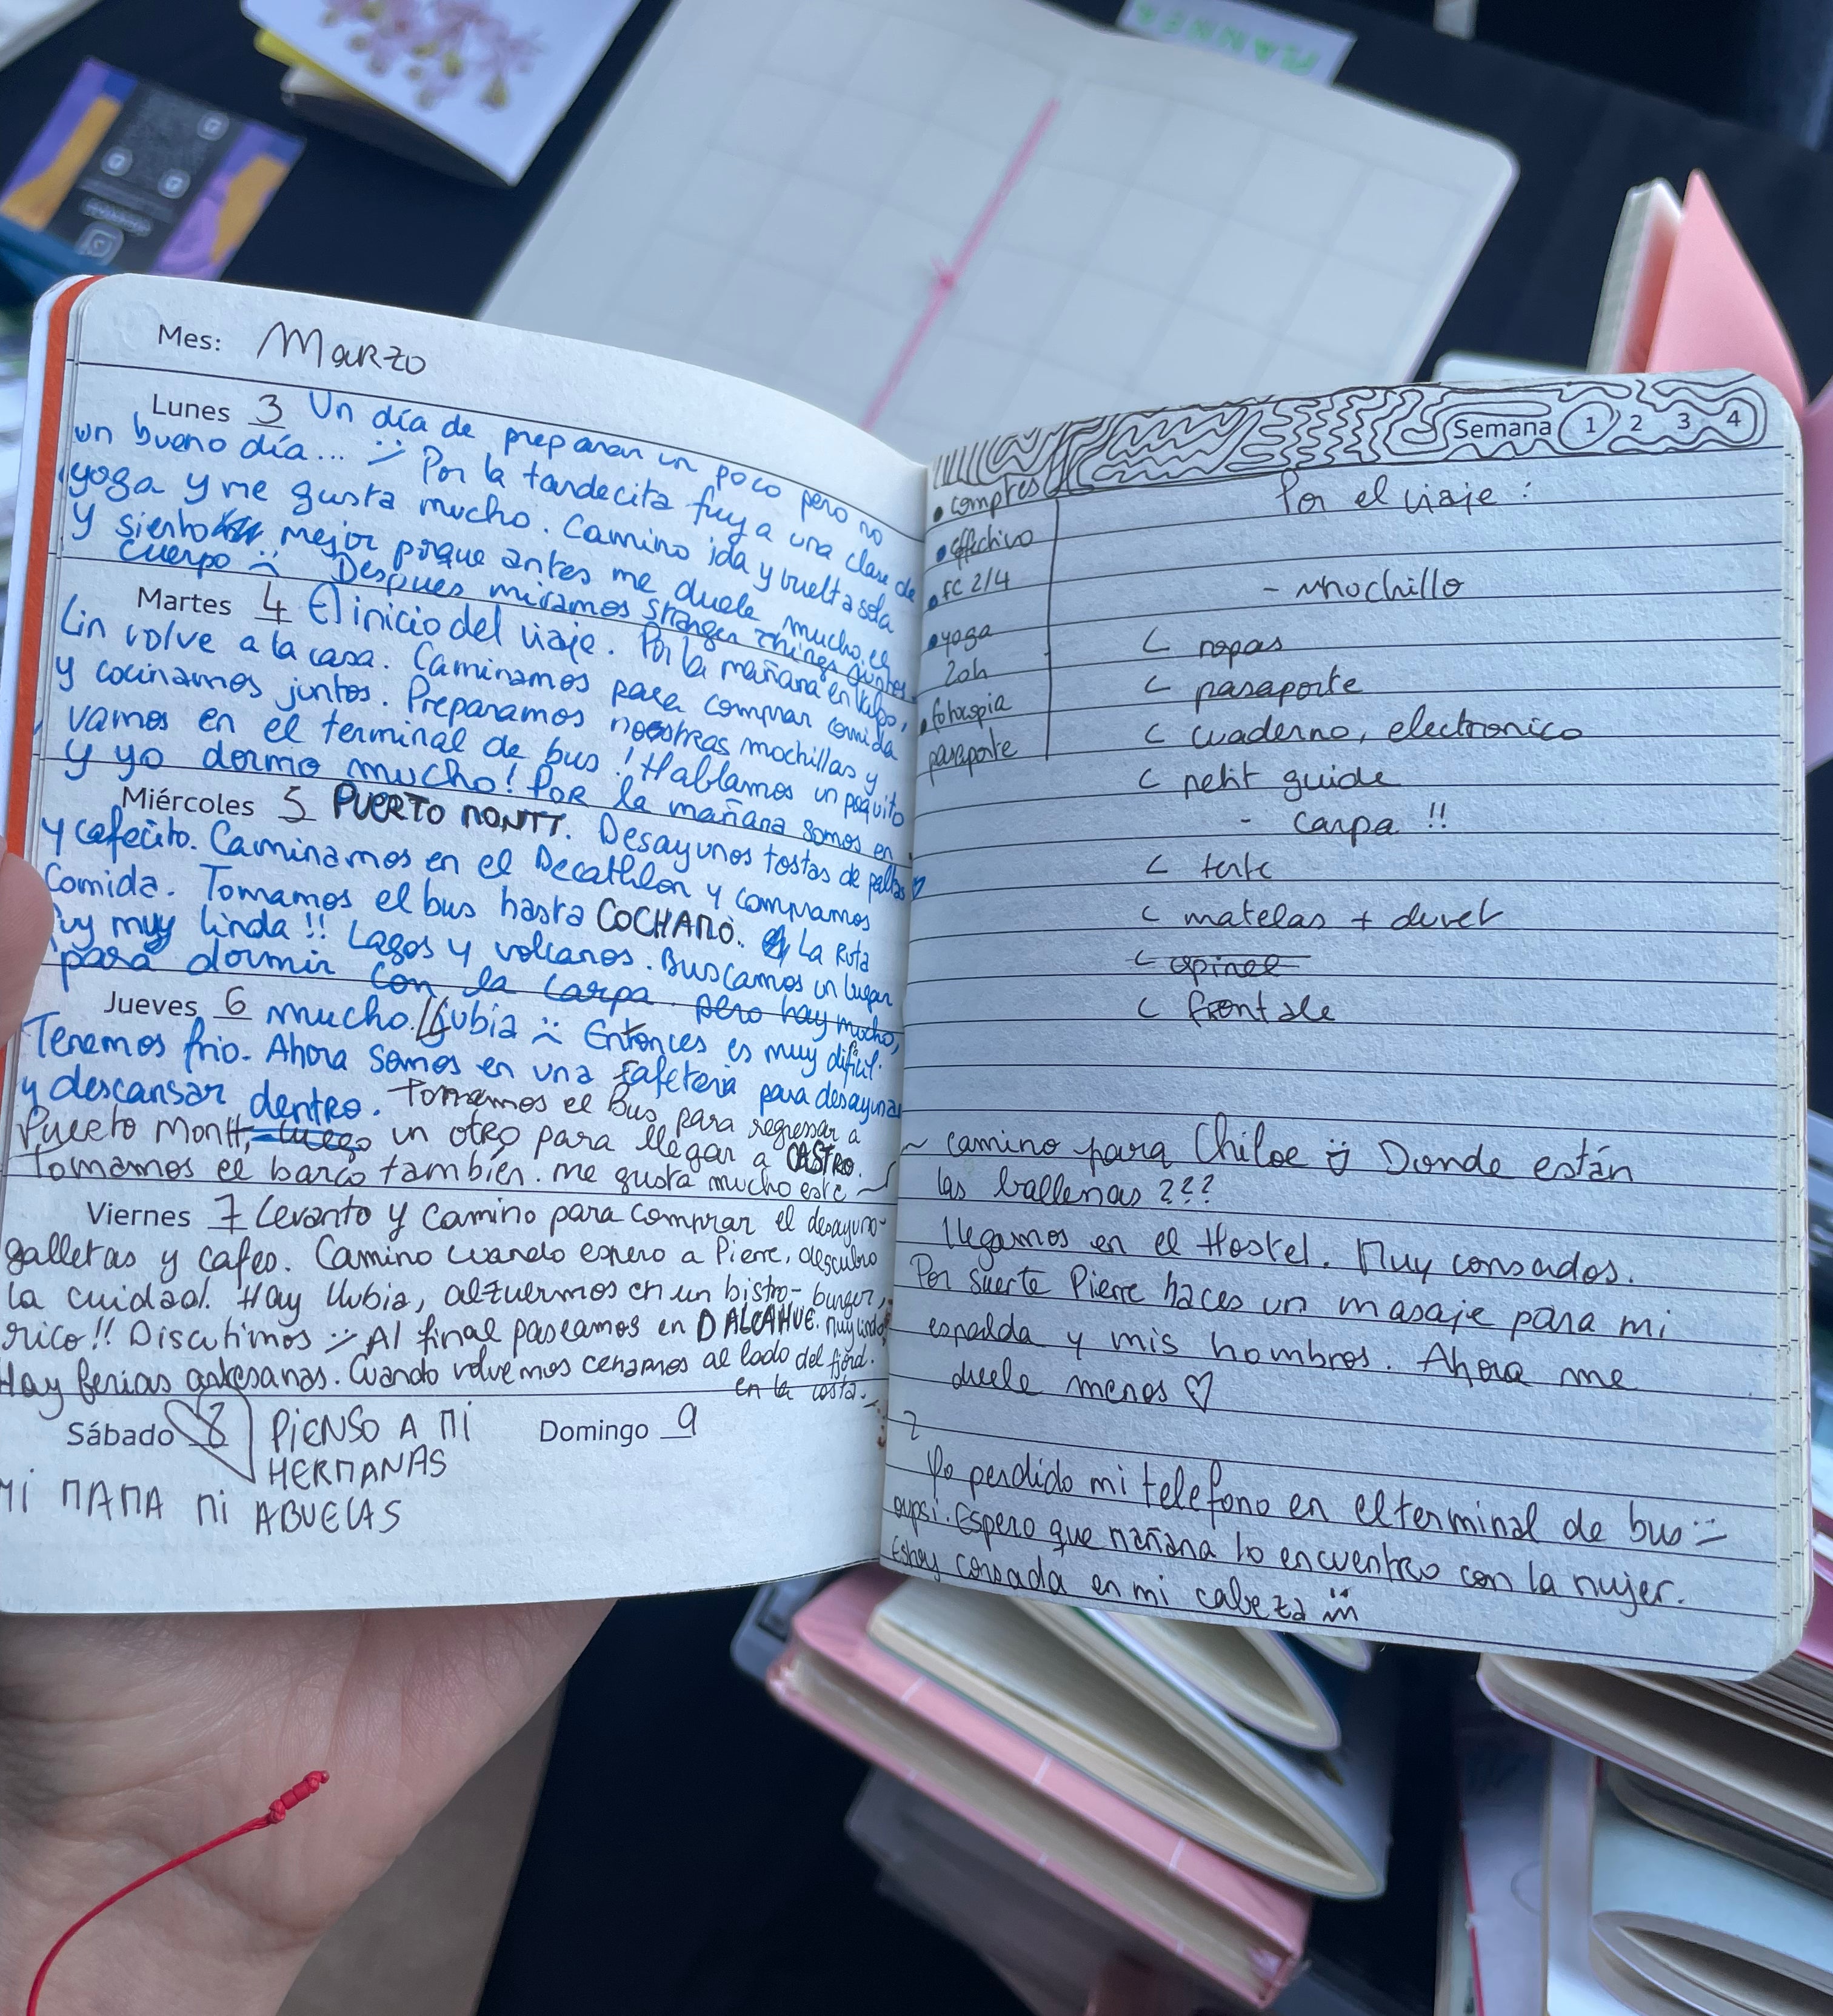 PLANNER
Mes: Marzo
Lunes 3 Un día de preparar un poco pero no
un bueno día... Por la tardecita fuy a una clase de
yoga y me gusta mucho. Camino ida y vuelta sola
y siento mejor porque antes me duele mucho el
cuerpo Despues miramos stranger things juntos.
Martes 4 El inicio del viaje. Por la mañana
Lin volve a la casa. Caminamos para comprar comida
y cocinamos juntos. Preparamos nuestras mochillas y
vamos en el terminal de bus! Hablamos un poquito
y yo dormo mucho! Por la mañana somos en
Miércoles 5 PUERTO MONTT. Desayunos tostas de paltas
y cafecito. Caminamos en el Decathlon y compramos
comida. Tomamos el bus hasta COCHAMO. La Ruta
muy linda!! Lagos y volcanos. Buscamos un lugar
para dormir con la carpa. pero hay mucho,
Jueves 6 mucho Llubia Entonces es muy dificil.
Tenemos frio. Ahora somos en una cafeteria para desayunar
y descansar dentro. Tomamos el Bus para regressar a
Puerto Montt, luego un otro para llegar a CASTRO.
Tomamos el barco también. me gusta mucho este
Viernes 7 Levanto y camino para comprar el desayuno-
galletas y cafeo. Camino cuando espero a Pierre, descubro
la cuidad. Hay llubia, alzuermos en un bistro-burger,
rico!! Discutimos Al final paseamos en DALCAHUE. muy lindo
Hay ferias artesanas. Cuando volvemos cenamos al lado del fiord.
en la costa.
Sábado 8 PIENSO A MI Domingo 9
HERMANAS
MI MAMA MI ABUELAS
Semana 1 2 3 4
• compres
• effectivo
• FC 2/4
• yoga
20h
• fotocopia
pasaporte
Por el viaje:
- mochillo
ropas
pasaporte
cuaderno, electronico
petit guide
- carpa !!
tente
matelas + duvet
frontale
~ camino para Chiloe Donde están
las ballenas ???
llegamos en el Hostel. Muy consados.
Por suerte Pierre haces un masaje para mi
espalda y mis hombros. Ahora me
duele menos ♡
Yo perdido mi telefono en el terminal de bus
oupsi. Espero que mañana lo encuentro con la mujer.
Estoy consada en mi cabeza